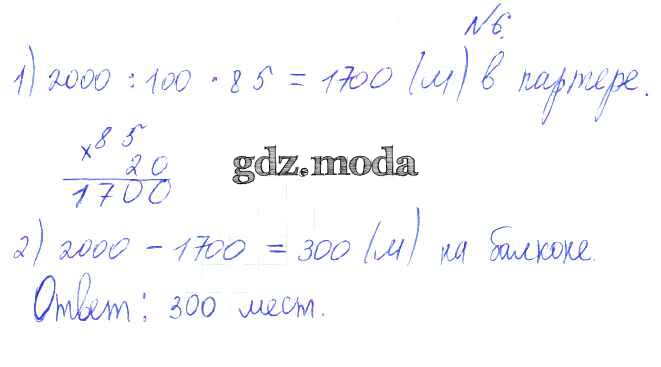 №6.
1) 2000 : 100 · 85 = 1700 (м) в партере.
× 85
20
1700
gdz.moda
2) 2000 - 1700 = 300 (м) на балконе.
Ответ: 300 мест.